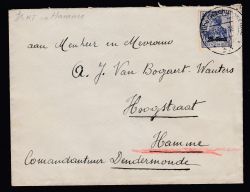 aan Menheer en Mevrouw
A. J. Van Bogaert-Wauters
Hoogstraat
Hamme
Comandantuur Dendermonde